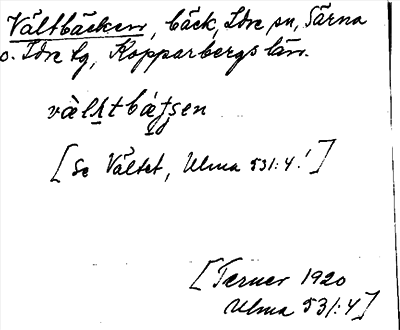 Vältbäcken, bäck, Idre sn, Särna
o. Idre tg, Kopparbergs län.
[Se Vältet, Ulma 531:4!]
[Terner 1920
Ulma 531:4]